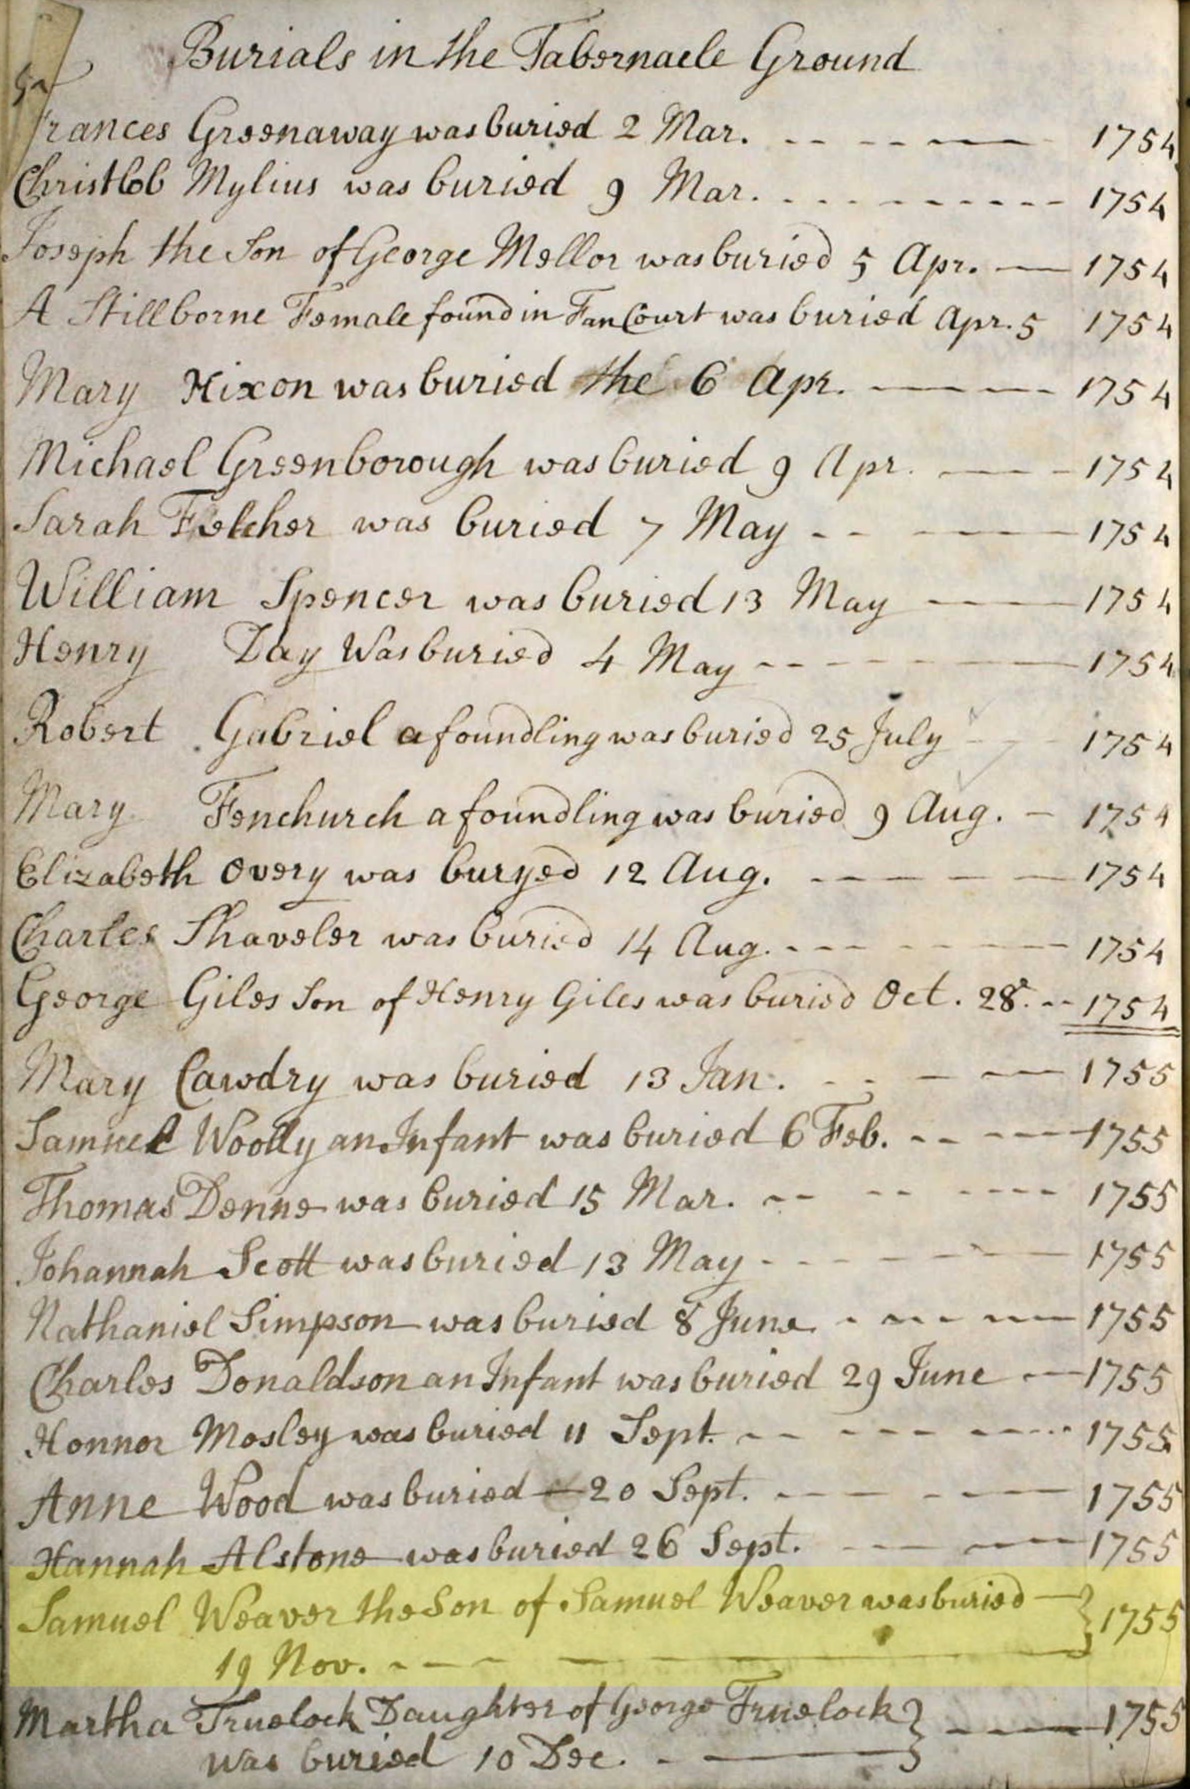 Burials in the Tabernacle Ground
Frances Greenaway was buried 2 Mar. 1754
Christlob Mylius was buried 9 Mar. 1754
Joseph the Son of George Mellor was buried 5 Apr. 1754
A Stillborne Female found in Fan Court was buried Apr. 5 1754
Mary Hixon was buried the 6 Apr. 1754
Michael Greenborough was buried 9 Apr. 1754
Sarah Felcher was buried 7 May 1754
William Spencer was buried 13 May 1754
Henry Day Was buried 4 May 1754
Robert Gabriel a foundling was buried 25 July 1754
Mary Fenchurch a foundling was buried 9 Aug. 1754
Elizabeth Overy was buryed 12 Aug. 1754
Charles Shaveler was buried 14 Aug. 1754
George Giles Son of Henry Giles was buried Oct. 28. 1754
Mary Cawdry was buried 13 Jan. 1755
Samuel Woolly an Infant was buried 6 Feb. 1755
Thomas Denne was buried 15 Mar. 1755
Johannah Scott was buried 13 May 1755
Nathaniel Simpson was buried 8 June 1755
Charles Donaldson an Infant was buried 29 June 1755
Honnor Mosley was buried 11 Sept. 1755
Anne Wood was buried 20 Sept. 1755
Hannah Alstone was buried 26 Sept. 1755
Samuel Weaver the Son of Samuel Weaver was buried } 1755
19 Nov.
Martha Truelock Daughter of George Truelock } 1755
was buried 10 Dec.